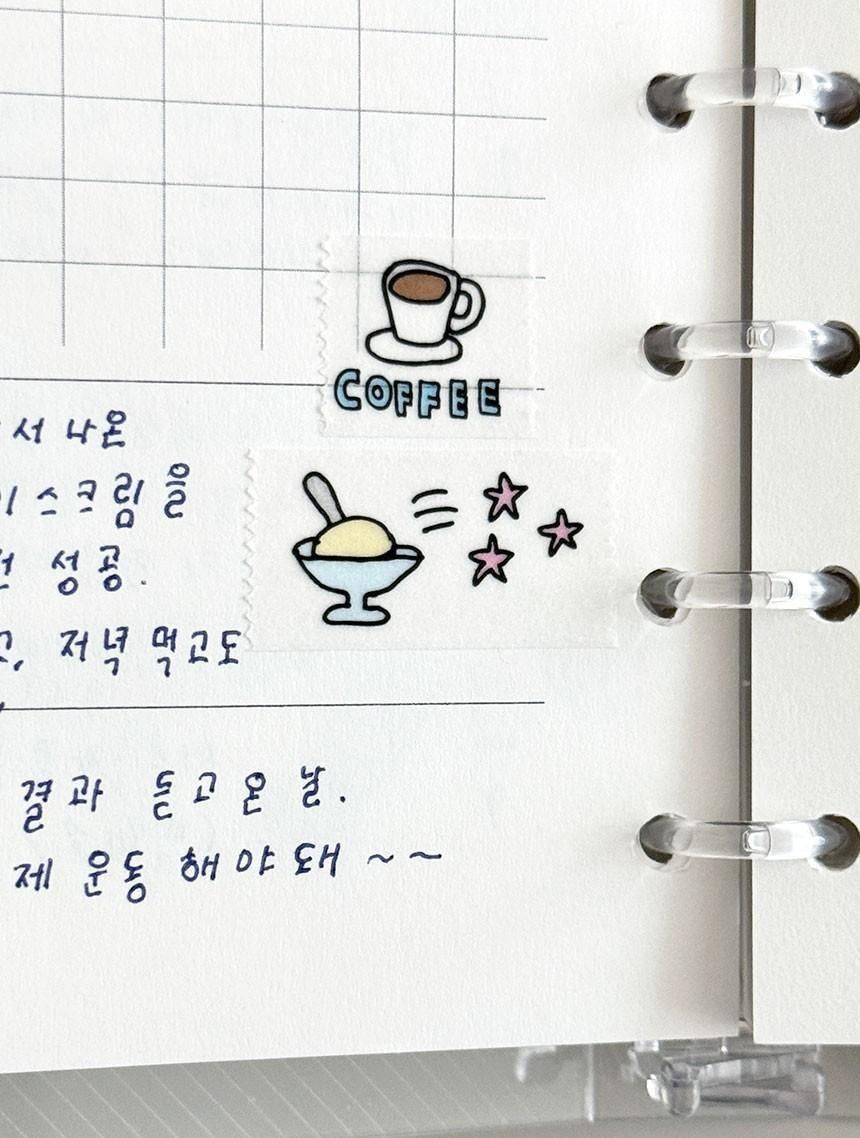 COFFEE
서 나온
이스크림을
전 성공.
고, 저녁 먹고도
결과 들고 온 날.
제 운동 해야 돼 ~ ~